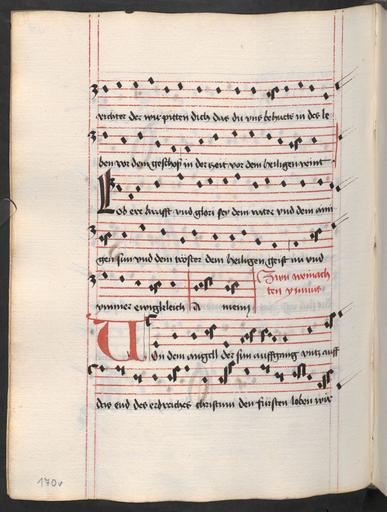 richter der wir pitten dich das du vns behuets in des le
ben vor dem geschos in der zeit vor dem heiligen veint
Lob ere krafft vnd glori sey dem vater vnd dem ain
gen sun vnd dem tröster dem heiligen geist nu vnd
ymmer ewigkleich a men
Zun weinach
ten ymnus
Von dem angell der sun auffgang vntz auff
das end des erdreiches christum den fursten loben wir
170v